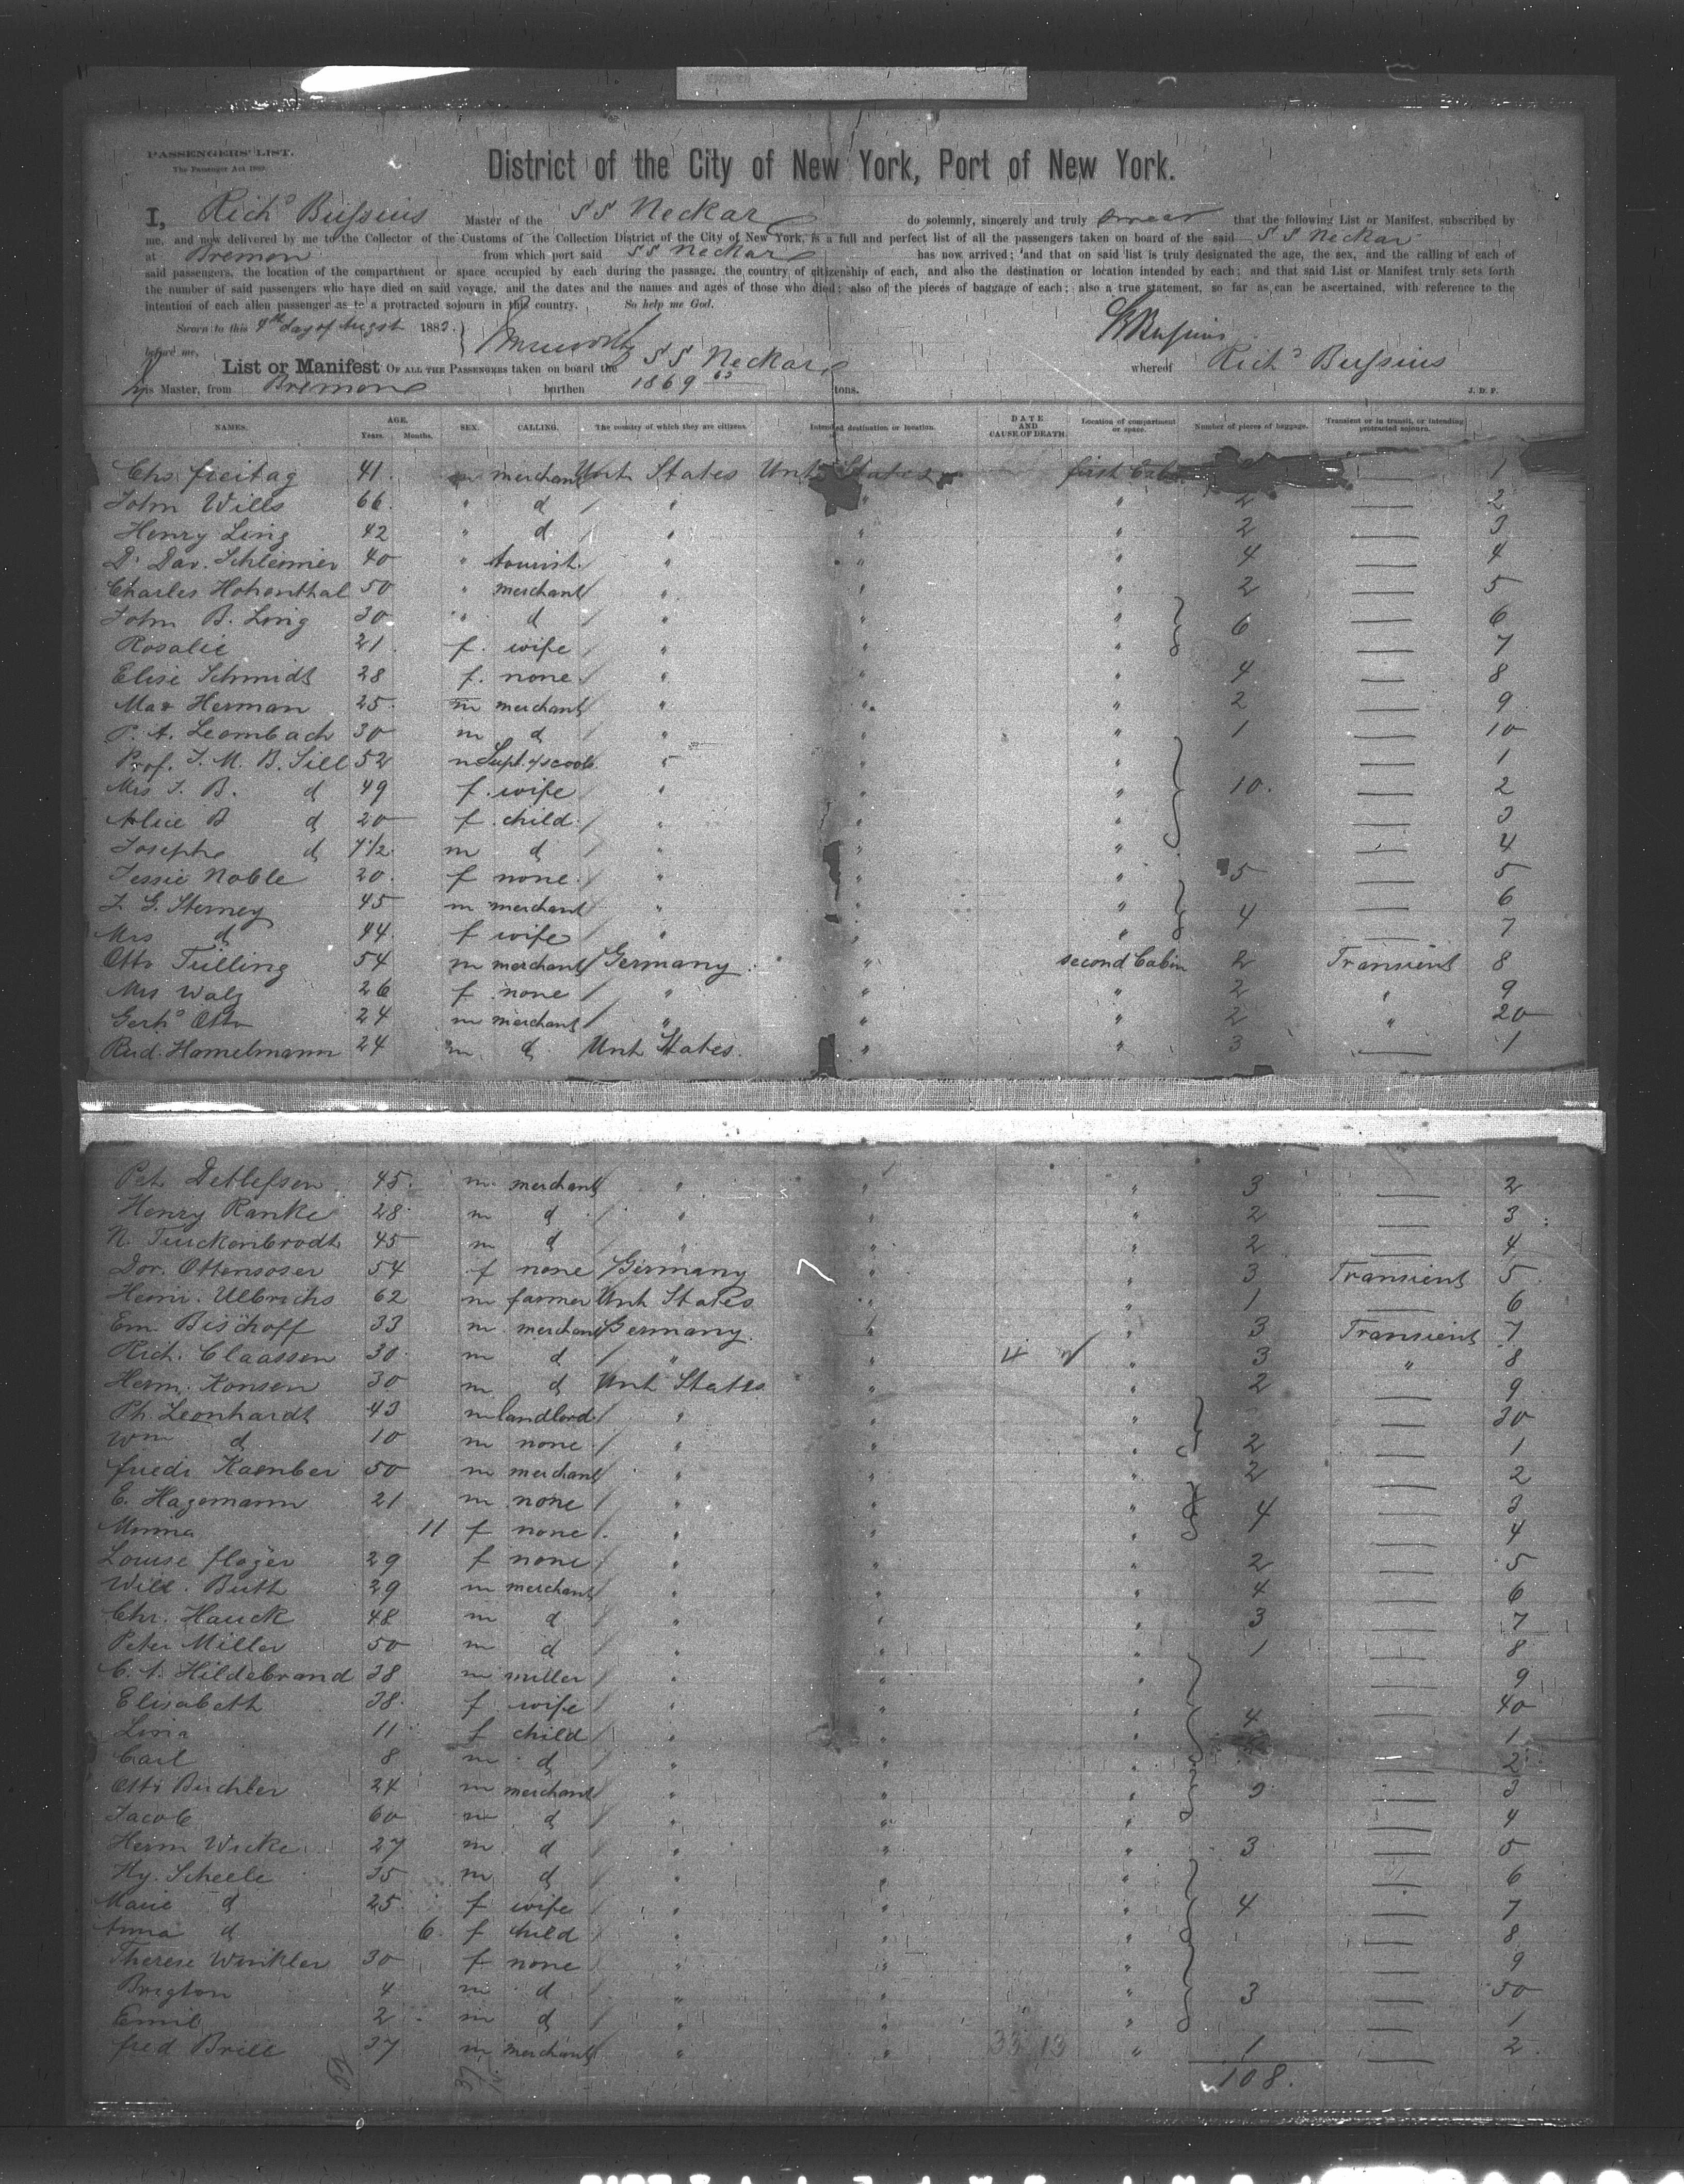 PASSENGERS' LIST.
The Passenger Act 1882.
District of the City of New York, Port of New York.
I, Richd Bussius Master of the SS Neckar do solemnly, sincerely and truly swear that the following List or Manifest, subscribed by
me, and now delivered by me to the Collector of the Customs of the Collection District of the City of New York, is a full and perfect list of all the passengers taken on board of the said SS Neckar
at Bremen from which port said SS Neckar has now arrived; and that on said list is truly designated the age, the sex, and the calling of each of
said passengers, the location of the compartment or space occupied by each during the passage, the country of citizenship of each, and also the destination or location intended by each; and that said List or Manifest truly sets forth
the number of said passengers who have died on said voyage, and the dates and the names and ages of those who died; also of the pieces of baggage of each; also a true statement, so far as can be ascertained, with reference to the
intention of each alien passenger as to a protracted sojourn in this country. So help me God.
Sworn to this day of August 188
before me, RBussius
List or Manifest OF ALL THE PASSENGERS taken on board the SS Neckar whereof Richd Bussius
is Master, from Bremen burthen 1869 63 tons. J. D. P.
NAMES. AGE. Years. Months. SEX. CALLING. The country of which they are citizens. Intended destination or location. DATE AND CAUSE OF DEATH. Location of compartment or space. Number of pieces of baggage. Transient or in transit, or intending protracted sojourn.
Chs Freitag 41 m merchant Unit States Unit States first Cab — 1
John Wills 66 " d " " " 2 — 2
Henry Ling 42 " d " " " 2 — 3
Dr Dav. Schleimer 40 " tourist " " " 4 — 4
Charles Hohenthal 50 " merchant " " " 2 — 5
John B. Ling 30 " d " " " 6 — 6
Rosalie 21 f. wife " " " — 7
Elise Schmidt 28 f. none " " " 4 — 8
Max Herman 25 m merchant " " " 2 — 9
P. A. Leombach 30 m d " " " 1 — 10
Prof. J. M. B. Sill 52 m Supt. of scools " " — 1
Mrs J. B. d 49 f. wife " " " 10. — 2
Alice B d 20 f. child " " " — 3
Josephe d m d " " " — 4
Jessie Noble 20 f none " " " 5 — 5
J. G. Sterney 45 m merchant " " " 4 — 6
Mrs d 44 f wife " " " — 7
Otto Tülling 54 m merchant Germany " second Cabin 2 Transient 8
Mrs Walz 26 f none " " " 2 " 9
Gerhd Otto 24 m merchant " " " 2 " 20
Rud. Hamelmann 24 m d Unit States " " 3 — 1
Pet. Detlefsen 45 m merchant " " " 3 — 2
Henry Ranke 28 m d " " " 2 — 3
N. Tuckenbrodt 45 m d " " " 2 — 4
Dor. Ottensoser 54 f none Germany " " 3 Transient 5
Heinr. Ulbrichs 62 m farmer Unit States " " 1 6
Em Bischoff 33 m merchant Germany " " 3 Transient 7
Rich. Claassen 30 m d " " " 3 " 8
Herm. Konsen 30 m d Unit States " " 2 — 9
Ph. Leonhardt 43 m landlord " " " — 30
Wm d 10 m none " " " 2 — 1
Friedr Kaember 50 m merchant " " " 2 — 2
E. Hagemann 21 m none " " " 4 — 3
Minna 11 f none " " " 4
Louise Flager 29 f none " " " 2 — 5
Will. Buth 29 m merchant " " " 4 — 6
Chr. Hauck 48 m d " " " 3 — 7
Peter Miller 50 m d " " " 1 — 8
C. A. Hildebrand 38 m miller " " " — 9
Elisabeth 38 f wife " " " 4 — 40
Livia 11 f child " " " — 1
Carl 8 m d " " " — 2
Otto Büchler 24 m merchant " " " 3 — 3
Jacob 60 m d " " " — 4
Herm Wicke 27 m d " " " 3 — 5
Hy. Scheele 35 m d " " " — 6
Marie d 25 f wife " " " 4 — 7
Anna d 6 f child " " " — 8
Therese Winkler 30 f none " " " — 9
Brigton 4 m d " " " 3 — 50
Emil 2 m d " " " — 1
Fred Brill 37 m merchant " " 33 13 " 1 — 2
108.